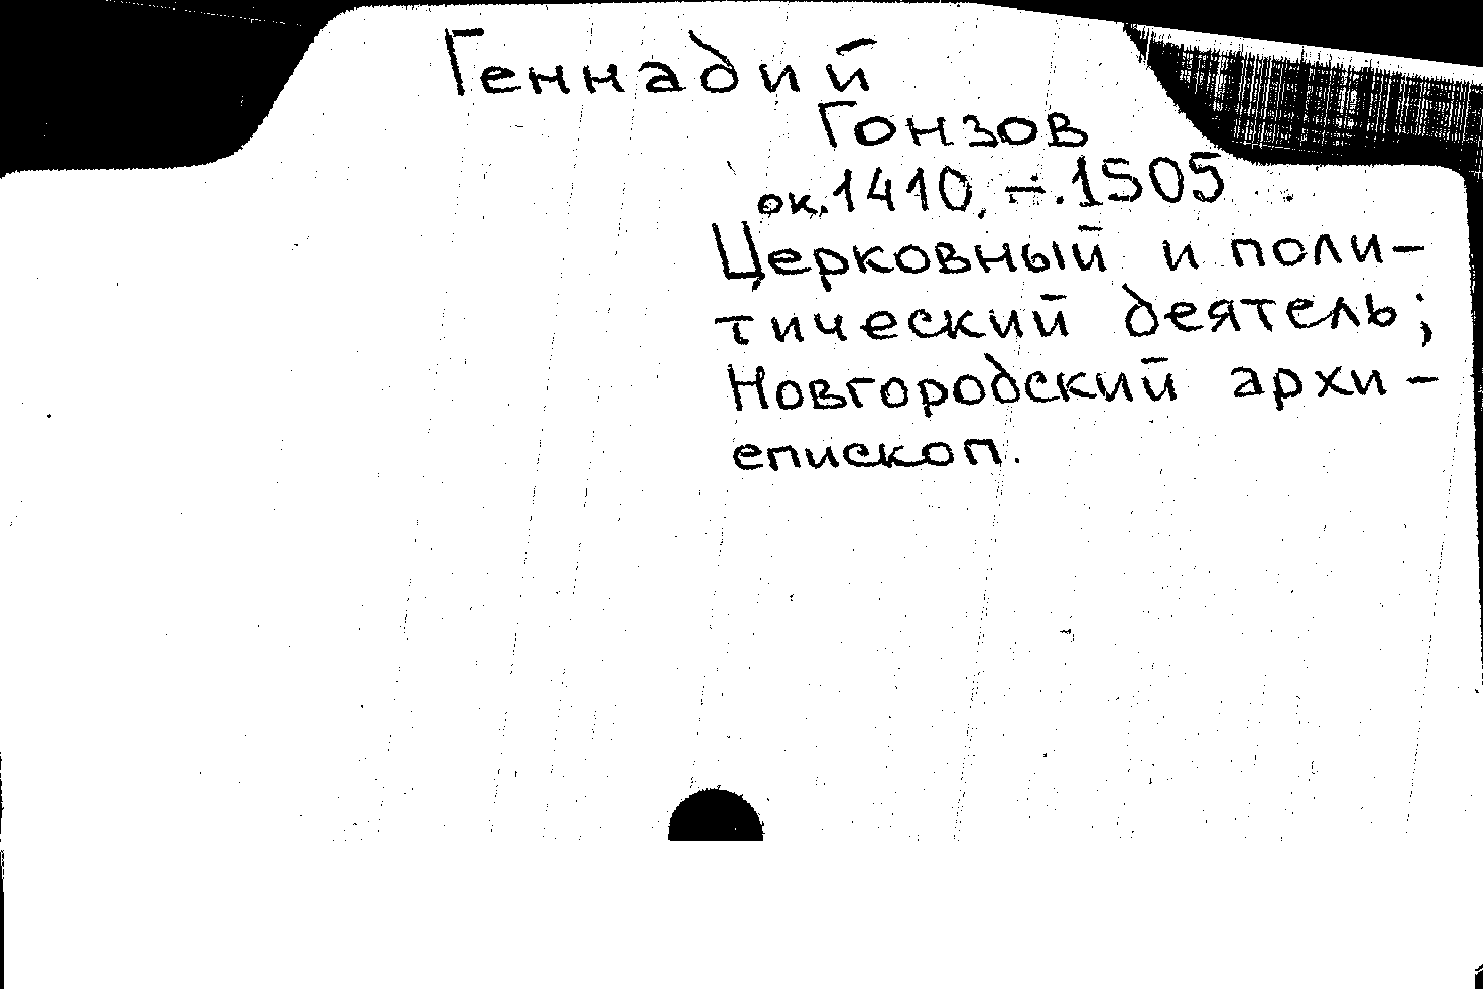 Геннадий
Гонзов
ок. 1410, ÷. 1505
Церковный и поли-
тический деятель;
Новгородский архи-
епископ.